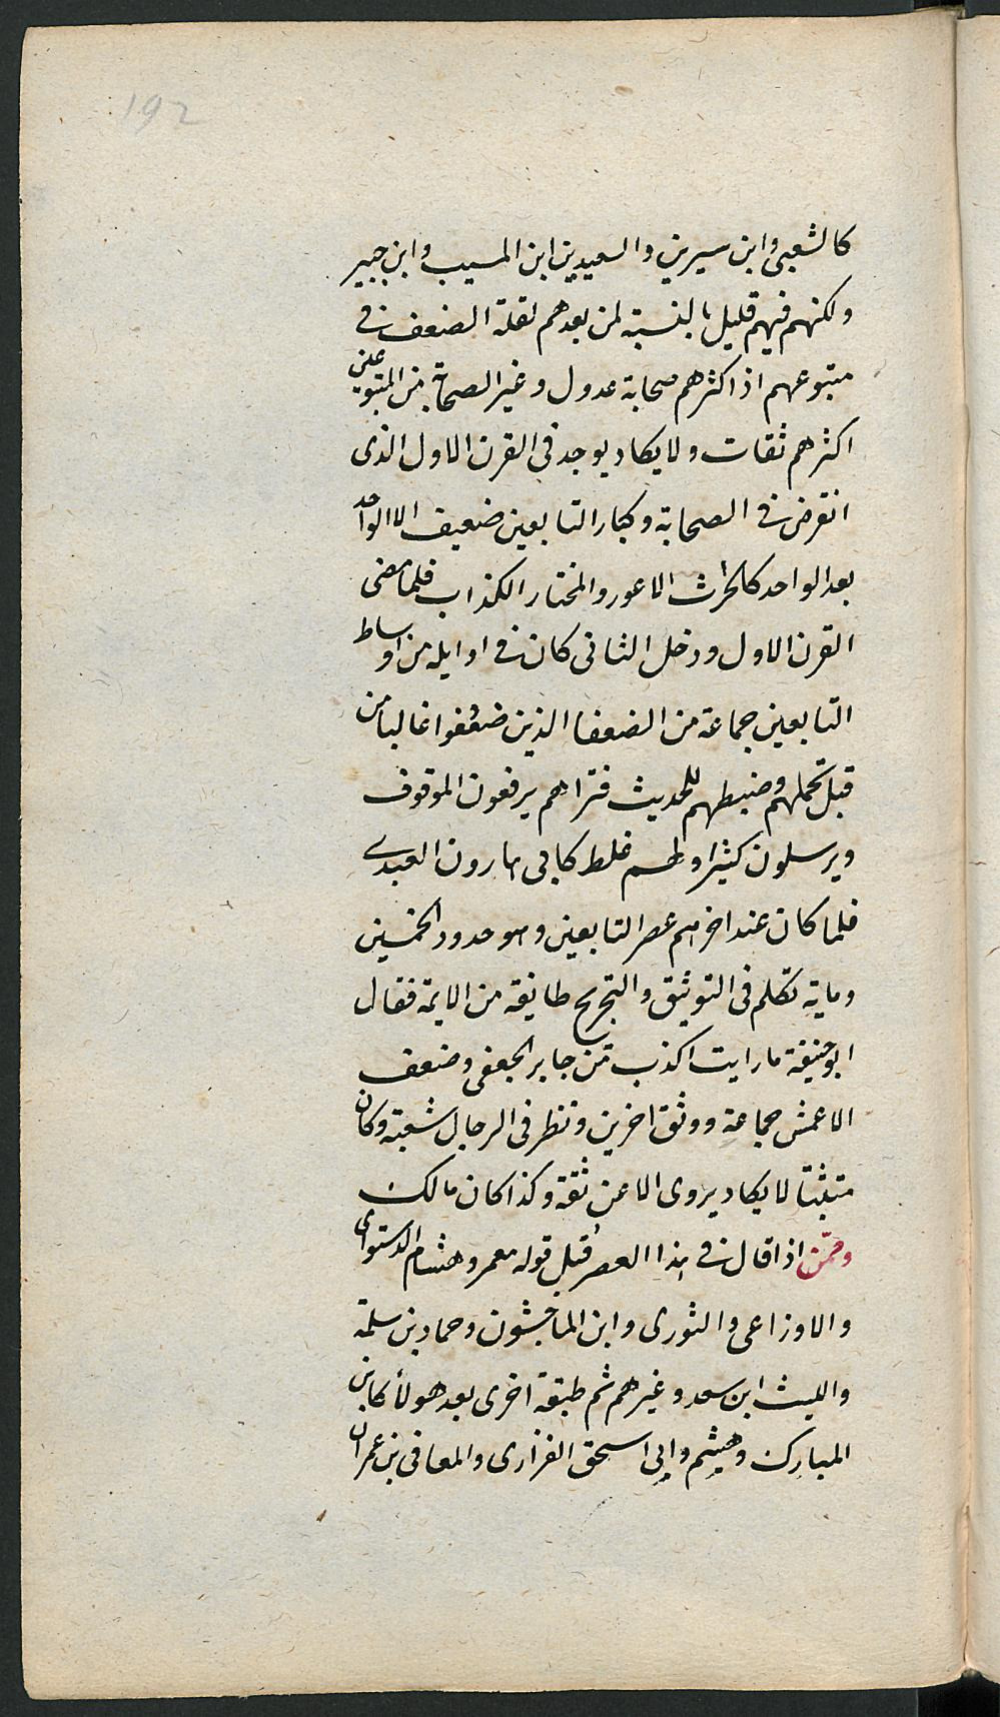 192
كالشعبى وابن سيرين والسعيدين ابن المسيب وابن جبير
ولكنهم فيهم قليل بالنسبة لمن بعدهم لقلة الضعف فى
متبوعهم اذ اكثرهم صحابة عدول وغير الصحابة من المتبوعين
اكثرهم ثقات ولا يكاد يوجد فى القرن الاول الذى
انقرض فى الصحابة وكبار التابعين ضعيف الا الواحد
بعد الواحد كالحرث الاعور والمختار الكذاب فلما مضى
القرن الاول ودخل الثانى كان فى اوايله من اوساط
التابعين جماعة من الضعفا الذين ضعفوا غالبا من
قبل تحملهم وضبطهم للحديث فتراهم يرفعون الموقوف
ويرسلون كثيرا ولهم غلط كابى هارون العبدى
فلما كان عند اخرهم عصر التابعين وهو حدود الخمسين
وماية تكلم فى التوثيق والتجريح طايفة من الايمة فقال
ابو حنيفة ما رايت اكذب من جابر الجعفى وضعف
الاعمش جماعة ووثق اخرين ونظر فى الرجال شعبة وكان
متثبتا لا يكاد يروى الا عن ثقة وكذا كان مالك
وممن اذا قال فى هذا العصر قبل قوله معمر وهشام الدستواى
والاوزاعى والثورى وابن الماجشون وحماد بن سلمة
والليث ابن سعد وغيرهم ثم طبقة اخرى بعد هولأ كابن
المبارك وهشيم وابى اسحق الفزارى والمعافى بن عمران